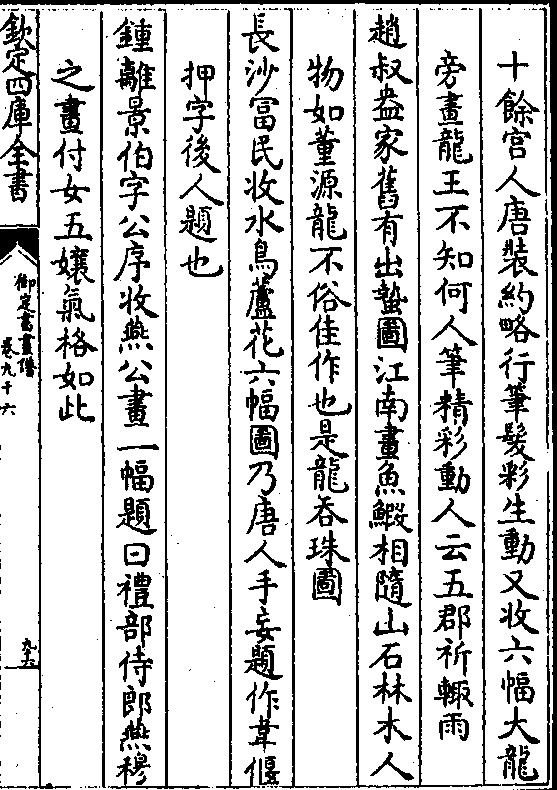 十餘宫人唐裝約略行筆髮彩生動又收六幅大龍
旁畫龍王不知何人筆精彩動人云五郡祈輙雨
趙叔盎家舊有出蟄圖江南畫魚鰕相隨山石林木人
物如董源龍不俗佳作也是龍吞珠圖
長沙富民收水鳥蘆花六幅圖乃唐人手妄題作韋偃
押字後人題也
鍾離景伯字公序收燕公畫一幅題曰禮部侍郎燕穆
之畫付女五孃氣格如此
欽定四庫全書
御定書畫譜
卷九十六